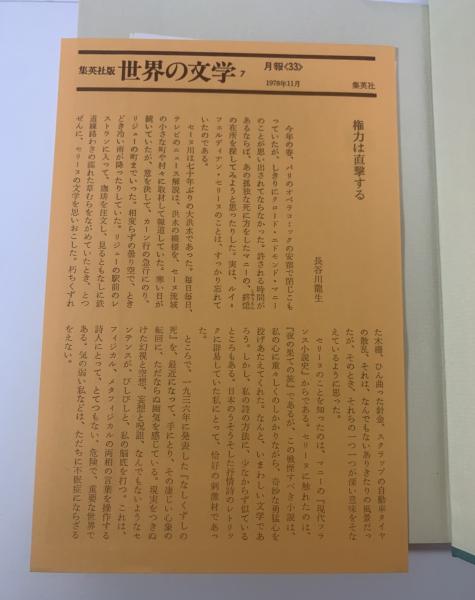 集英社版 世界の文学 7
月報〈33〉
1978年11月
集英社
権力は直撃する
長谷川龍生
今年の春、パリのオペラコミックの安宿で閉じこも
っていたが、しきりにクロード・エドモンド・マニー
のことが思い出されてならなかった。許される時間が
あるならば、あの孤独な死に方をしたマニーの、終焉
の在所を探してみようと思ったりした。実は、ルイ＝
フェルディナン・セリーヌのことは、すっかり忘れて
いたのである。
セーヌ川は七十年ぶりの大洪水であった。毎日毎日、
テレビのニュース解説は、洪水の模様を、セーヌ流域
の小さな町や村々に取材して報道していた。寒い日が
続いていたが、意を決して、カーン行の急行にのり、
リジューの町までいった。相変らずの曇り空で、とき
どき冷い雨が降ったりしていた。リジューの駅前のレ
ストランに入って、珈琲を注文し、見るともなしに鉄
道線路わきの濡れた草むらをながめていたとき、とつ
ぜんに、セリーヌの文学を思いおこした。朽ちくずれ
た木柵、ひん曲った針金、スクラップの自動車タイヤ
の散乱、それは、なんでもないありきたりの風景だっ
たが、そのとき、それらの一つ一つが深い意味をそな
えているように思った。
セリーヌのことを知ったのは、マニーの『現代フラ
ンス小説史』からである。セリーヌに触れたのは、
『夜の果ての旅』であるが、この戦慄すべき小説は、
私の心に重々しくのしかかりながら、奇妙な勇猛心を
投げあたえてくれた。なんと、いまわしい文学であ
ろう。しかし、私の詩の方法に、少なからず似ている
ところもある。日本のうそうそした抒情詩のレトリッ
クに辟易していた私にとって、恰好の刺激材であっ
た。
ところで、一九三六年に発表した『なしくずしの
死』を、最近になって、手にとり、その凄じい心象の
転回に、ただならぬ幽気を感じている。現実をつきぬ
けた幻視と空想、妄想と呪詛、なんでもないようなセ
ンテンスが、びしびしと、私の脳底を打つ。これは、
フィジカル、メタフィジカルの両相の言葉を操作する
詩人にとって、とてつもない、危険で、重要な世界で
ある。気の弱い私などは、ただちに不眠症にならざる
をえない。